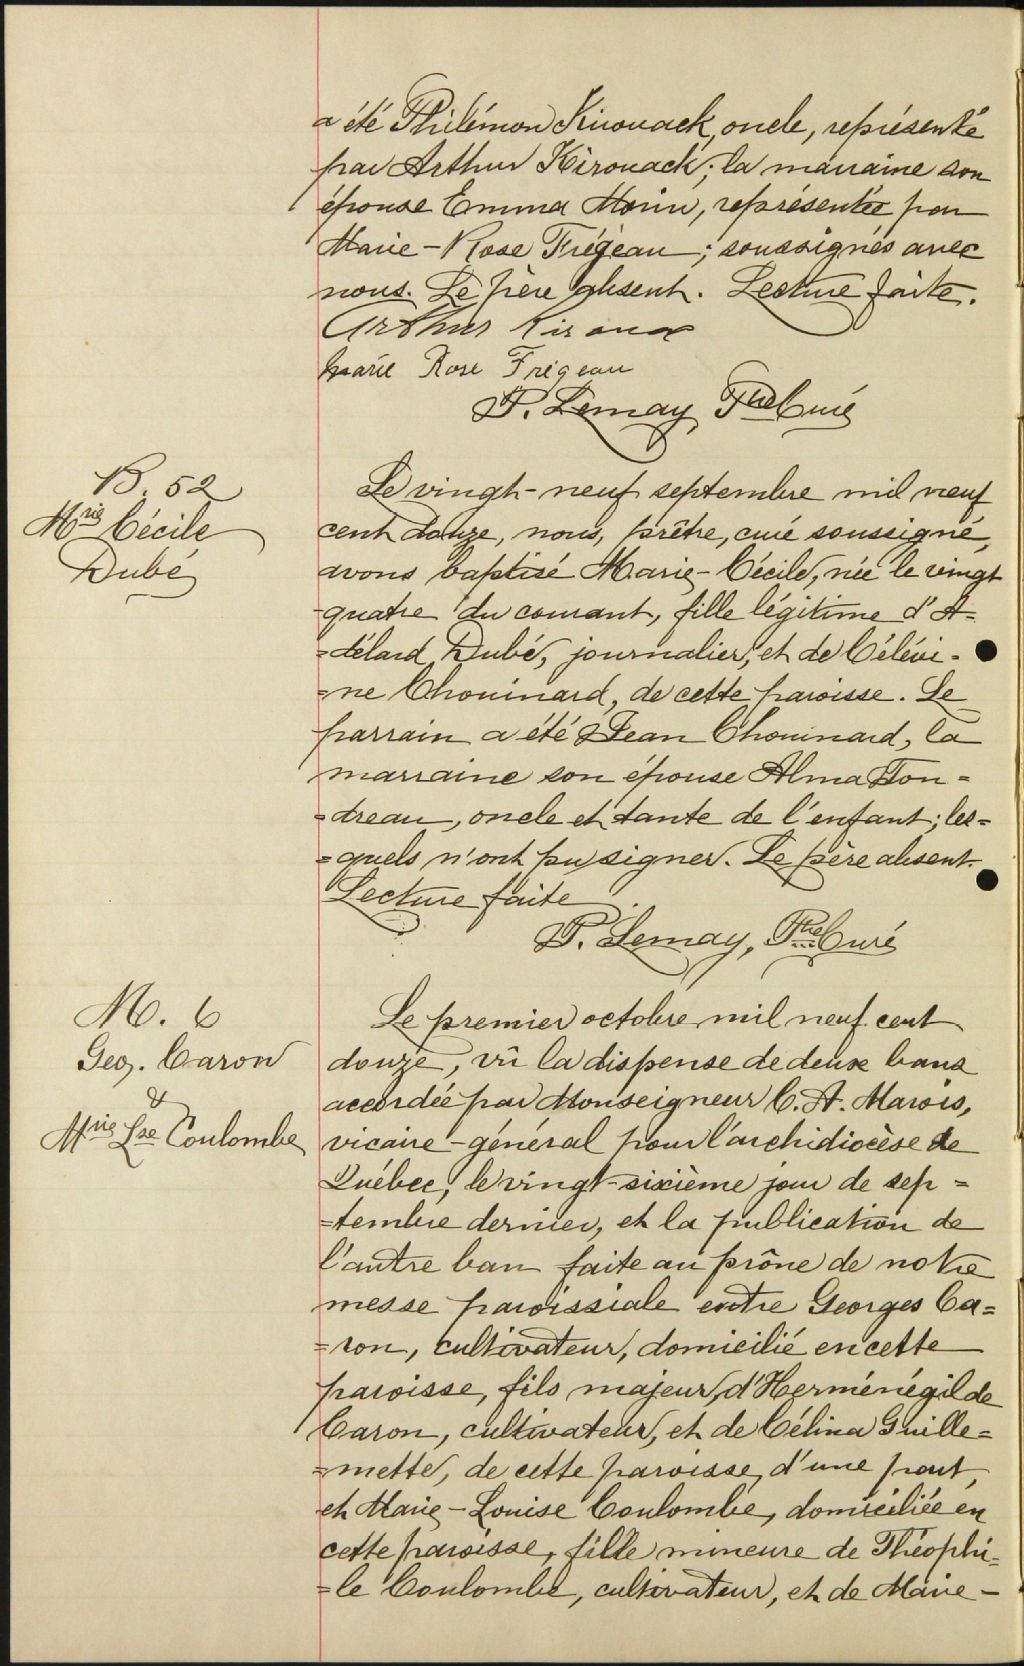 a été Philémon Kirouack, oncle, représenté
par Arthur Kirouack; la marraine son
épouse Emma Morin, représentée par
Marie-Rose Frégeau; soussignés avec
nous. Le père absent. Lecture faite.
Arthur Kirouac
Marie Rose Frégeau
P. Lemay, Ptre Curé
B. 52
Mrie Cécile
Dubé
Le vingt-neuf septembre mil neuf
cent douze, nous, prêtre, curé soussigné,
avons baptisé Marie-Cécile, née le vingt
quatre du courant, fille légitime d'A-
=délard Dubé, journalier, et de Célévi-
=ne Chouinard, de cette paroisse. Le
parrain a été Jean Chouinard, la
marraine son épouse Alma Ton=
=dreau, oncle et tante de l'enfant; les=
=quels n'ont pu signer. Le père absent.
Lecture faite.
P. Lemay, Ptre Curé
M. 6
Geo. Caron
&
Mrie Lse Coulombe
Le premier octobre mil neuf cent
douze, vû la dispense de deux bans
accordée par Monseigneur C. A. Marois,
vicaire-général pour l'archidiocèse de
Québec, le vingt-sixième jour de sep=
=tembre dernier, et la publication de
l'autre ban faite au prône de notre
messe paroissiale entre Georges Ca=
=ron, cultivateur, domicilié en cette
paroisse, fils majeur d'Herménégilde
Caron, cultivateur, et de Célina Guille=
=mette, de cette paroisse, d'une part,
et Marie-Louise Coulombe, domiciliée en
cette paroisse, fille mineure de Théophi=
=le Coulombe, cultivateur, et de Marie-